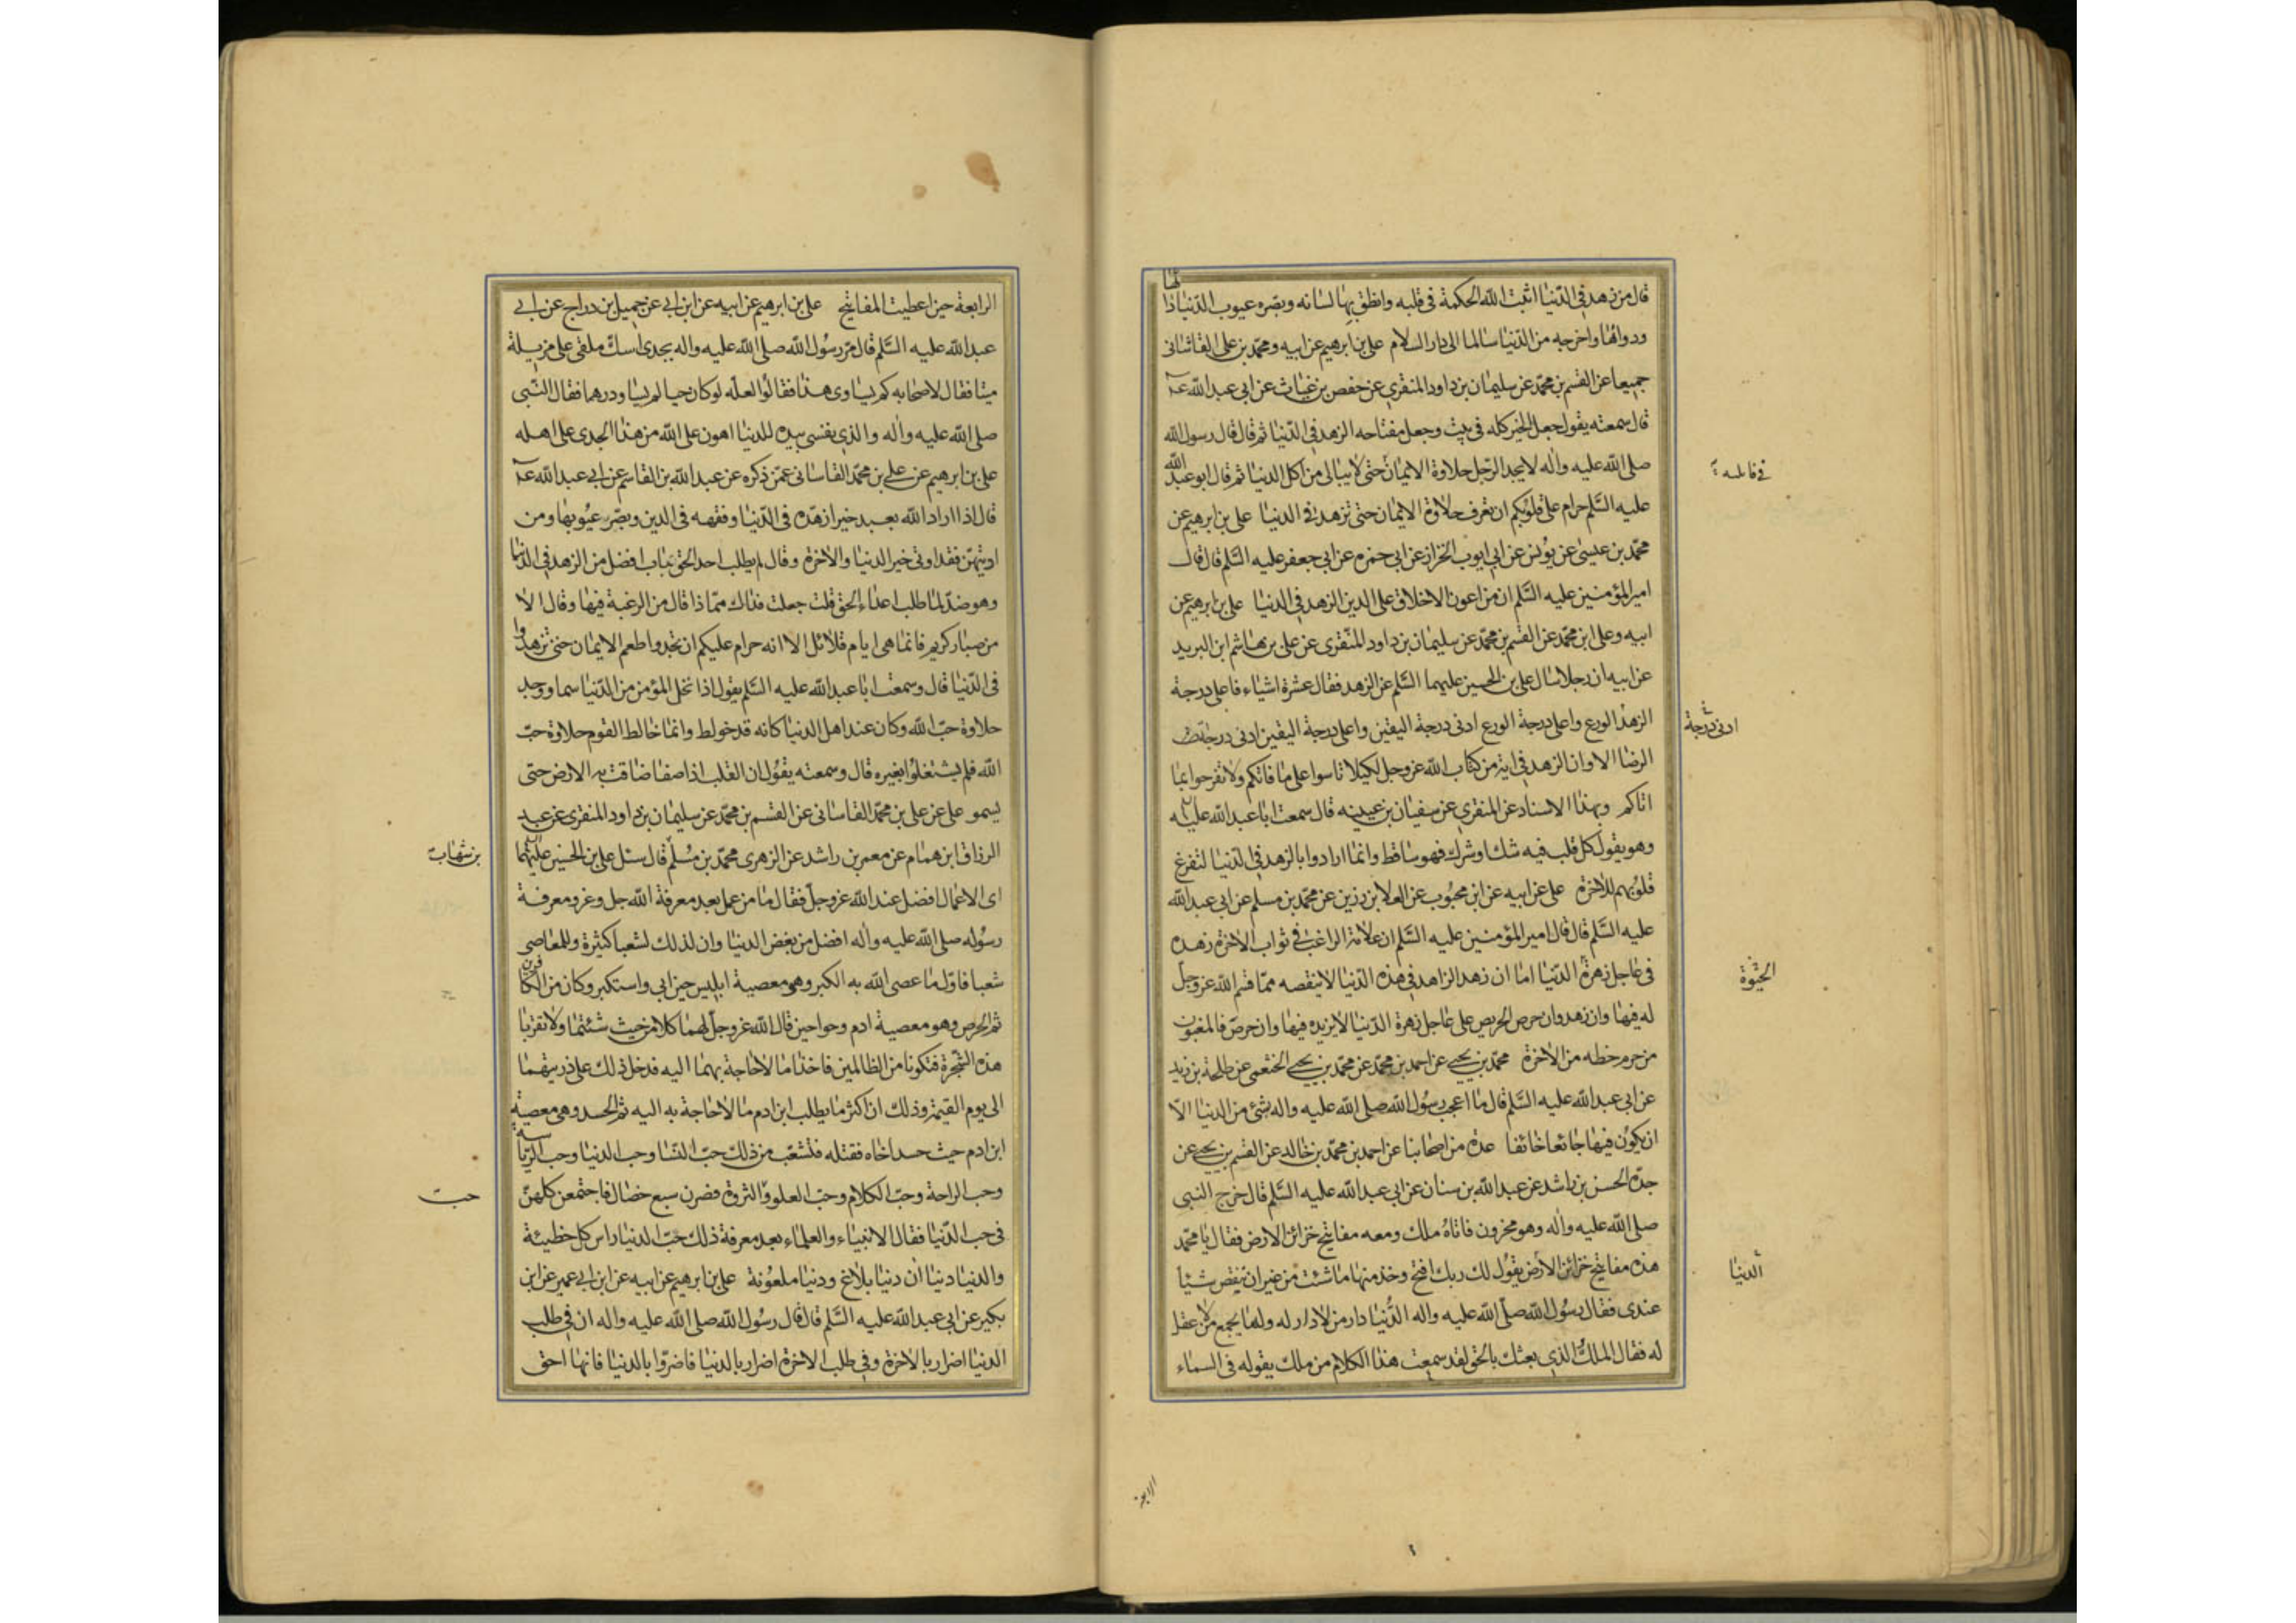 قال من زهد في الدنيا اثبت الله الحكمة في قلبه وانطق بها لسانه وبصره عيوب الدنيا داءها
ودواءها واخرجه من الدنيا سالما الى دار السلام علي بن ابرهيم عن ابيه ومحمد بن علي القاشانى
جميعا عن القسم بن محمد عن سليمان بن داود المنقري عن حفص بن غياث عن ابي عبد الله ع
قال سمعته يقول جعل الخير كله في بيت وجعل مفتاحه الزهد في الدنيا ثم قال قال رسول الله
صلى الله عليه واله لا يجد الرجل حلاوة الايمان حتى لا يبالى من اكل الدنيا ثم قال ابو عبد الله
في قلبه
عليه السلم حرام على قلوبكم ان تعرف حلاوة الايمان حتى تزهد في الدنيا علي بن ابرهيم عن
محمد بن عيسى عن يونس عن ابي ايوب الخزاز عن ابي حمزه عن ابي جعفر عليه السلم قال قال
امير المؤمنين عليه السلم ان من اعون الاخلاق على الدين الزهد في الدنيا علي بن ابرهيم عن
ابيه وعلى ابن محمد عن القسم بن محمد عن سليمان بن داود المنقرى عن علي بن هاشم ابن البريد
عن ابيه ان رجلا سال علي بن الحسين عليهما السلم عن الزهد فقال عشرة اشياء فاعلى درجة
الزهد الورع واعلى درجة الورع ادنى درجة اليقين واعلى درجة اليقين ادنى درجة
ادنى درجة
الرضا الا وان الزهد في اية من كتاب الله عز وجل لكيلا تاسوا على ما فاتكم ولا تفرحوا بما
اتاكم وبهذا الاسناد عن المنقري عن سفيان بن عيينه قال سمعت ابا عبد الله عليه
وهو يقول كل قلب فيه شك او شرك فهو ساقط وانما ارادوا بالزهد في الدنيا لتفرغ
قلوبهم للاخرة علي عن ابيه عن ابن محبوب عن العلا بن رزين عن محمد بن مسلم عن ابي عبد الله
عليه السلم قال قال امير المؤمنين عليه السلم ان علامة الراغب في ثواب الاخرة زهده
في عاجل زهرة الدنيا اما ان زهد الزاهد في هذه الدنيا لا ينقصه مما قسم الله عز وجل
الحيوة
له فيها وان زهد وان حرص الحريص على عاجل زهرة الدنيا لا يزيده فيها وان حرص فالمغبون
من حرم حظه من الاخرة محمد بن يحيى عن احمد بن محمد عن محمد بن يحيى الخثعمى عن طلحة بن زيد
عن ابى عبد الله عليه السلم قال ما اعجب رسول الله صلى الله عليه واله شئ من الدنيا الا
ان يكون فيها جائعا خائفا عدة من اصحابنا عن احمد بن محمد بن خالد عن القسم بن يحيى عن
جده الحسن بن راشد عن عبد الله بن سنان عن ابى عبد الله عليه السلم قال خرج النبى
صلى الله عليه واله وهو محزون فاتاه ملك ومعه مفاتيح خزائن الارض فقال يا محمد
هذه مفاتيح خزائن الارض يقول لك ربك افتح وخذ منها ما شئت من غير ان تنقص شيئا
الدنيا
عندى فقال رسول الله صلى الله عليه واله الدنيا دار من لا دار له ولها يجمع من لا عقل
له فقال الملك الذي بعثك بالحق لقد سمعت هذا الكلام من ملك يقوله في السماء
الرابعة
الرابعة حين اعطيت المفاتيح علي بن ابرهيم عن ابيه عن ابن ابي عن جميل بن دراج عن ابي
عبد الله عليه السلم قال مر رسول الله صلى الله عليه واله بجدى اسك ملقى على مزبلة
ميتا فقال لاصحابه كم يساوى هذا فقالوا لعله لو كان حيا لم يساو درهما فقال النبى
صلى الله عليه واله والذي نفسى بيده للدنيا اهون على الله من هذا الجدى على اهله
علي بن ابرهيم عن علي بن محمد القاسانى عمن ذكره عن عبد الله بن القاسم عن ابي عبد الله ع
قال اذا اراد الله بعبد خيرا زهده فى الدنيا وفقهه فى الدين وبصره عيوبها ومن
اوتيهن فقد اوتى خير الدنيا والاخرة وقال لم يطلب احد الحق بباب افضل من الزهد في الدنيا
وهو ضد لما طلب اعداء الحق قلت جعلت فداك مماذا قال من الرغبة فيها وقال الا
من صبار كريم فانما هى ايام قلائل الا انه حرام عليكم ان تجدوا طعم الايمان حتى تزهدوا
فى الدنيا قال وسمعت ابا عبد الله عليه السلم يقول اذا تخلى المؤمن من الدنيا سما ووجد
حلاوة حب الله وكان عند اهل الدنيا كانه قد خولط وانما خالط القوم حلاوة حب
الله فلم يشتغلوا بغيره قال وسمعته يقول ان القلب اذا صفا ضاقت به الارض حتى
يسمو علي عن علي بن محمد القاسانى عن القسم بن محمد عن سليمان بن داود المنقرى عن عبد
الرزاق ابن همام عن معمر بن راشد عن الزهرى محمد بن مسلم قال سئل علي بن الحسين عليهما
بن شهاب
اى الاعمال افضل عند الله عز وجل فقال ما من عمل بعد معرفة الله جل وعز ومعرفة
رسوله صلى الله عليه واله افضل من بغض الدنيا وان لذلك لشعبا كثيرة وللمعاصى
شعبا فاول ما عصى الله به الكبر وهو معصية ابليس حين ابى واستكبر وكان من الكافرين
ثم الحرص وهو معصية ادم وحوا حين قال الله عز وجل لهما كلا من حيث شئتما ولا تقربا
هذه الشجرة فتكونا من الظالمين فاخذا ما لا حاجة بهما اليه فدخل ذلك على ذريتهما
الى يوم القيمة وذلك ان اكثر ما يطلب ابن ادم ما لا حاجة به اليه ثم الحسد وهى معصية
ابن ادم حيث حسد اخاه فقتله فتشعب من ذلك حب النسا وحب الدنيا وحب الرياسة
وحب الراحة وحب الكلام وحب العلو والثروة فصرن سبع خصال فاجتمعن كلهن
حب
فى حب الدنيا فقال الانبياء والعلماء بعد معرفة ذلك حب الدنيا راس كل خطيئة
والدنيا دنياان دنيا بلاغ ودنيا ملعونة علي بن ابرهيم عن ابيه عن ابن ابي عمير عن ابن
بكير عن ابى عبد الله عليه السلم قال قال رسول الله صلى الله عليه واله ان في طلب
الدنيا اضرارا بالاخرة وفي طلب الاخرة اضرارا بالدنيا فاضروا بالدنيا فانها احق